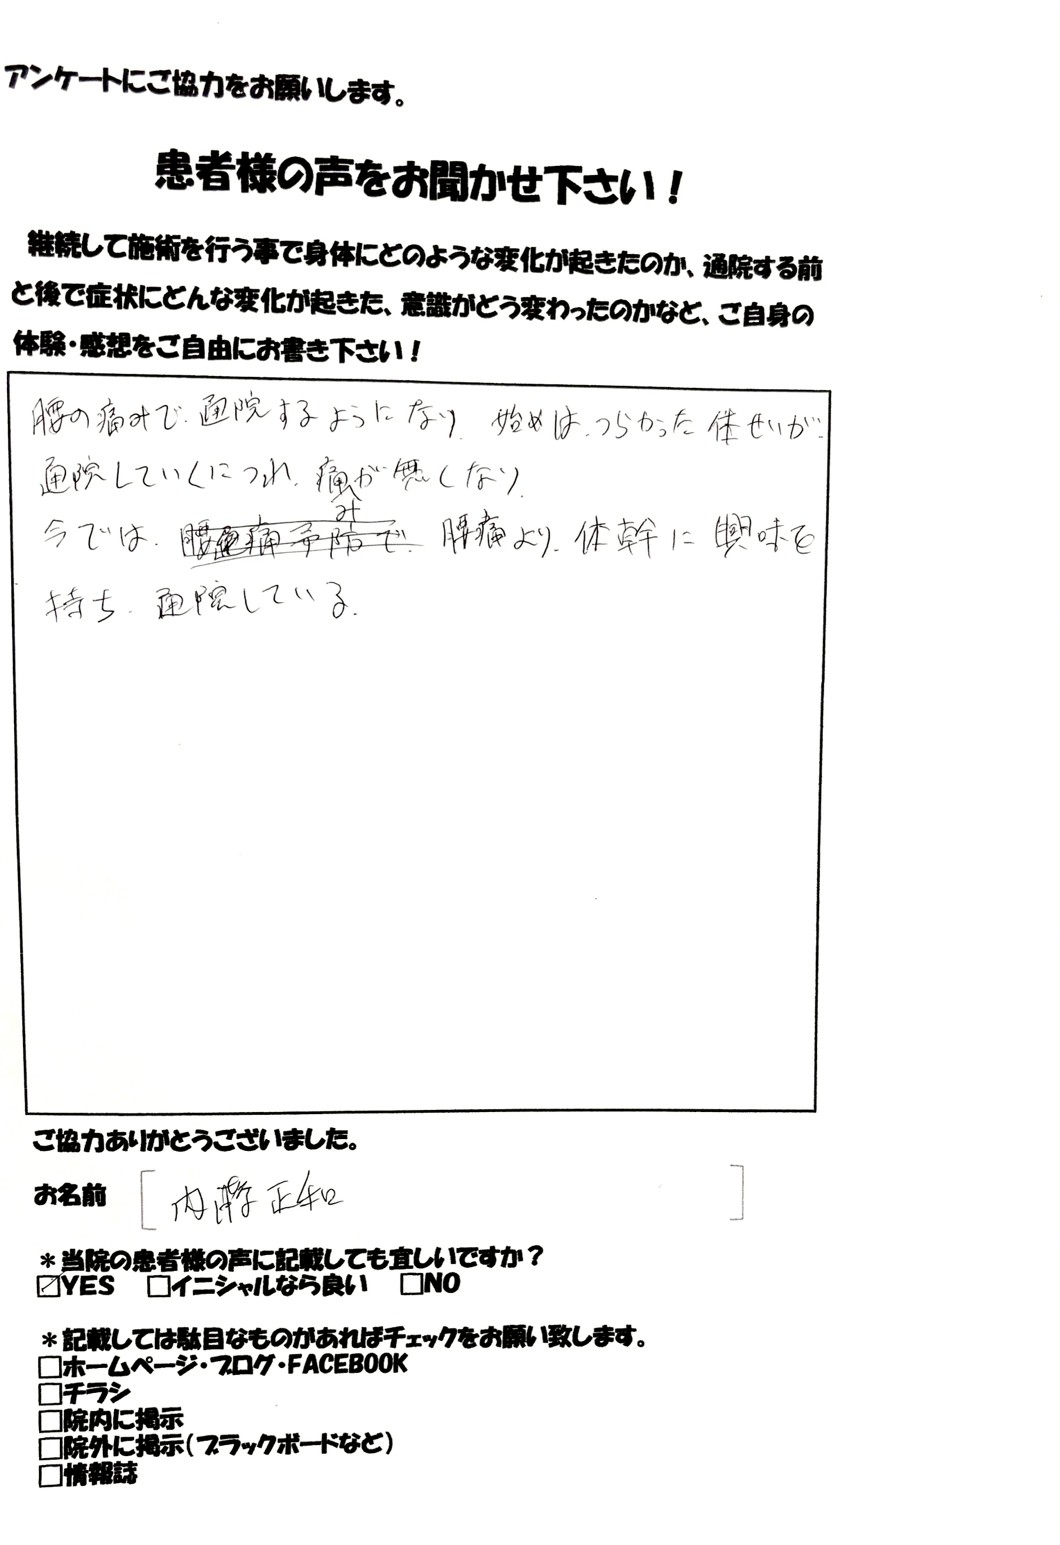 アンケートにご協力をお願いします。
患者様の声をお聞かせ下さい！
継続して施術を行う事で身体にどのような変化が起きたのか、通院する前
と後で症状にどんな変化が起きた、意識がどう変わったのかなど、ご自身の
体験・感想をご自由にお書き下さい！
腰の痛みで、通院するようになり、始めは、つらかった体せいが、
通院していくにつれ、痛みが無くなり、
今では、腰痛予防で、腰痛より、体幹に興味を
持ち、通院している。
ご協力ありがとうございました。
お名前 [内 正和]
＊当院の患者様の声に記載しても宜しいですか？
☑YES □イニシャルなら良い □NO
＊記載しては駄目なものがあればチェックをお願い致します。
□ホームページ・ブログ・FACEBOOK
□チラシ
□院内に掲示
□院外に掲示（ブラックボードなど）
□情報誌